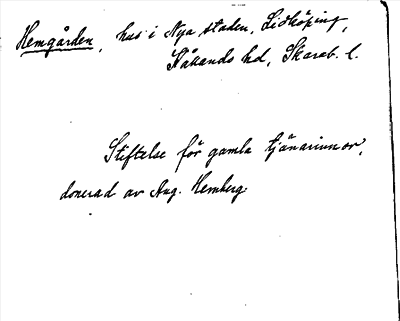 Hemgården, hus i Nya staden, Lidköping,
Kållands hd, Skarab. l.
Stiftelse för gamla tjänarinnor,
donerad av Aug. Hemberg